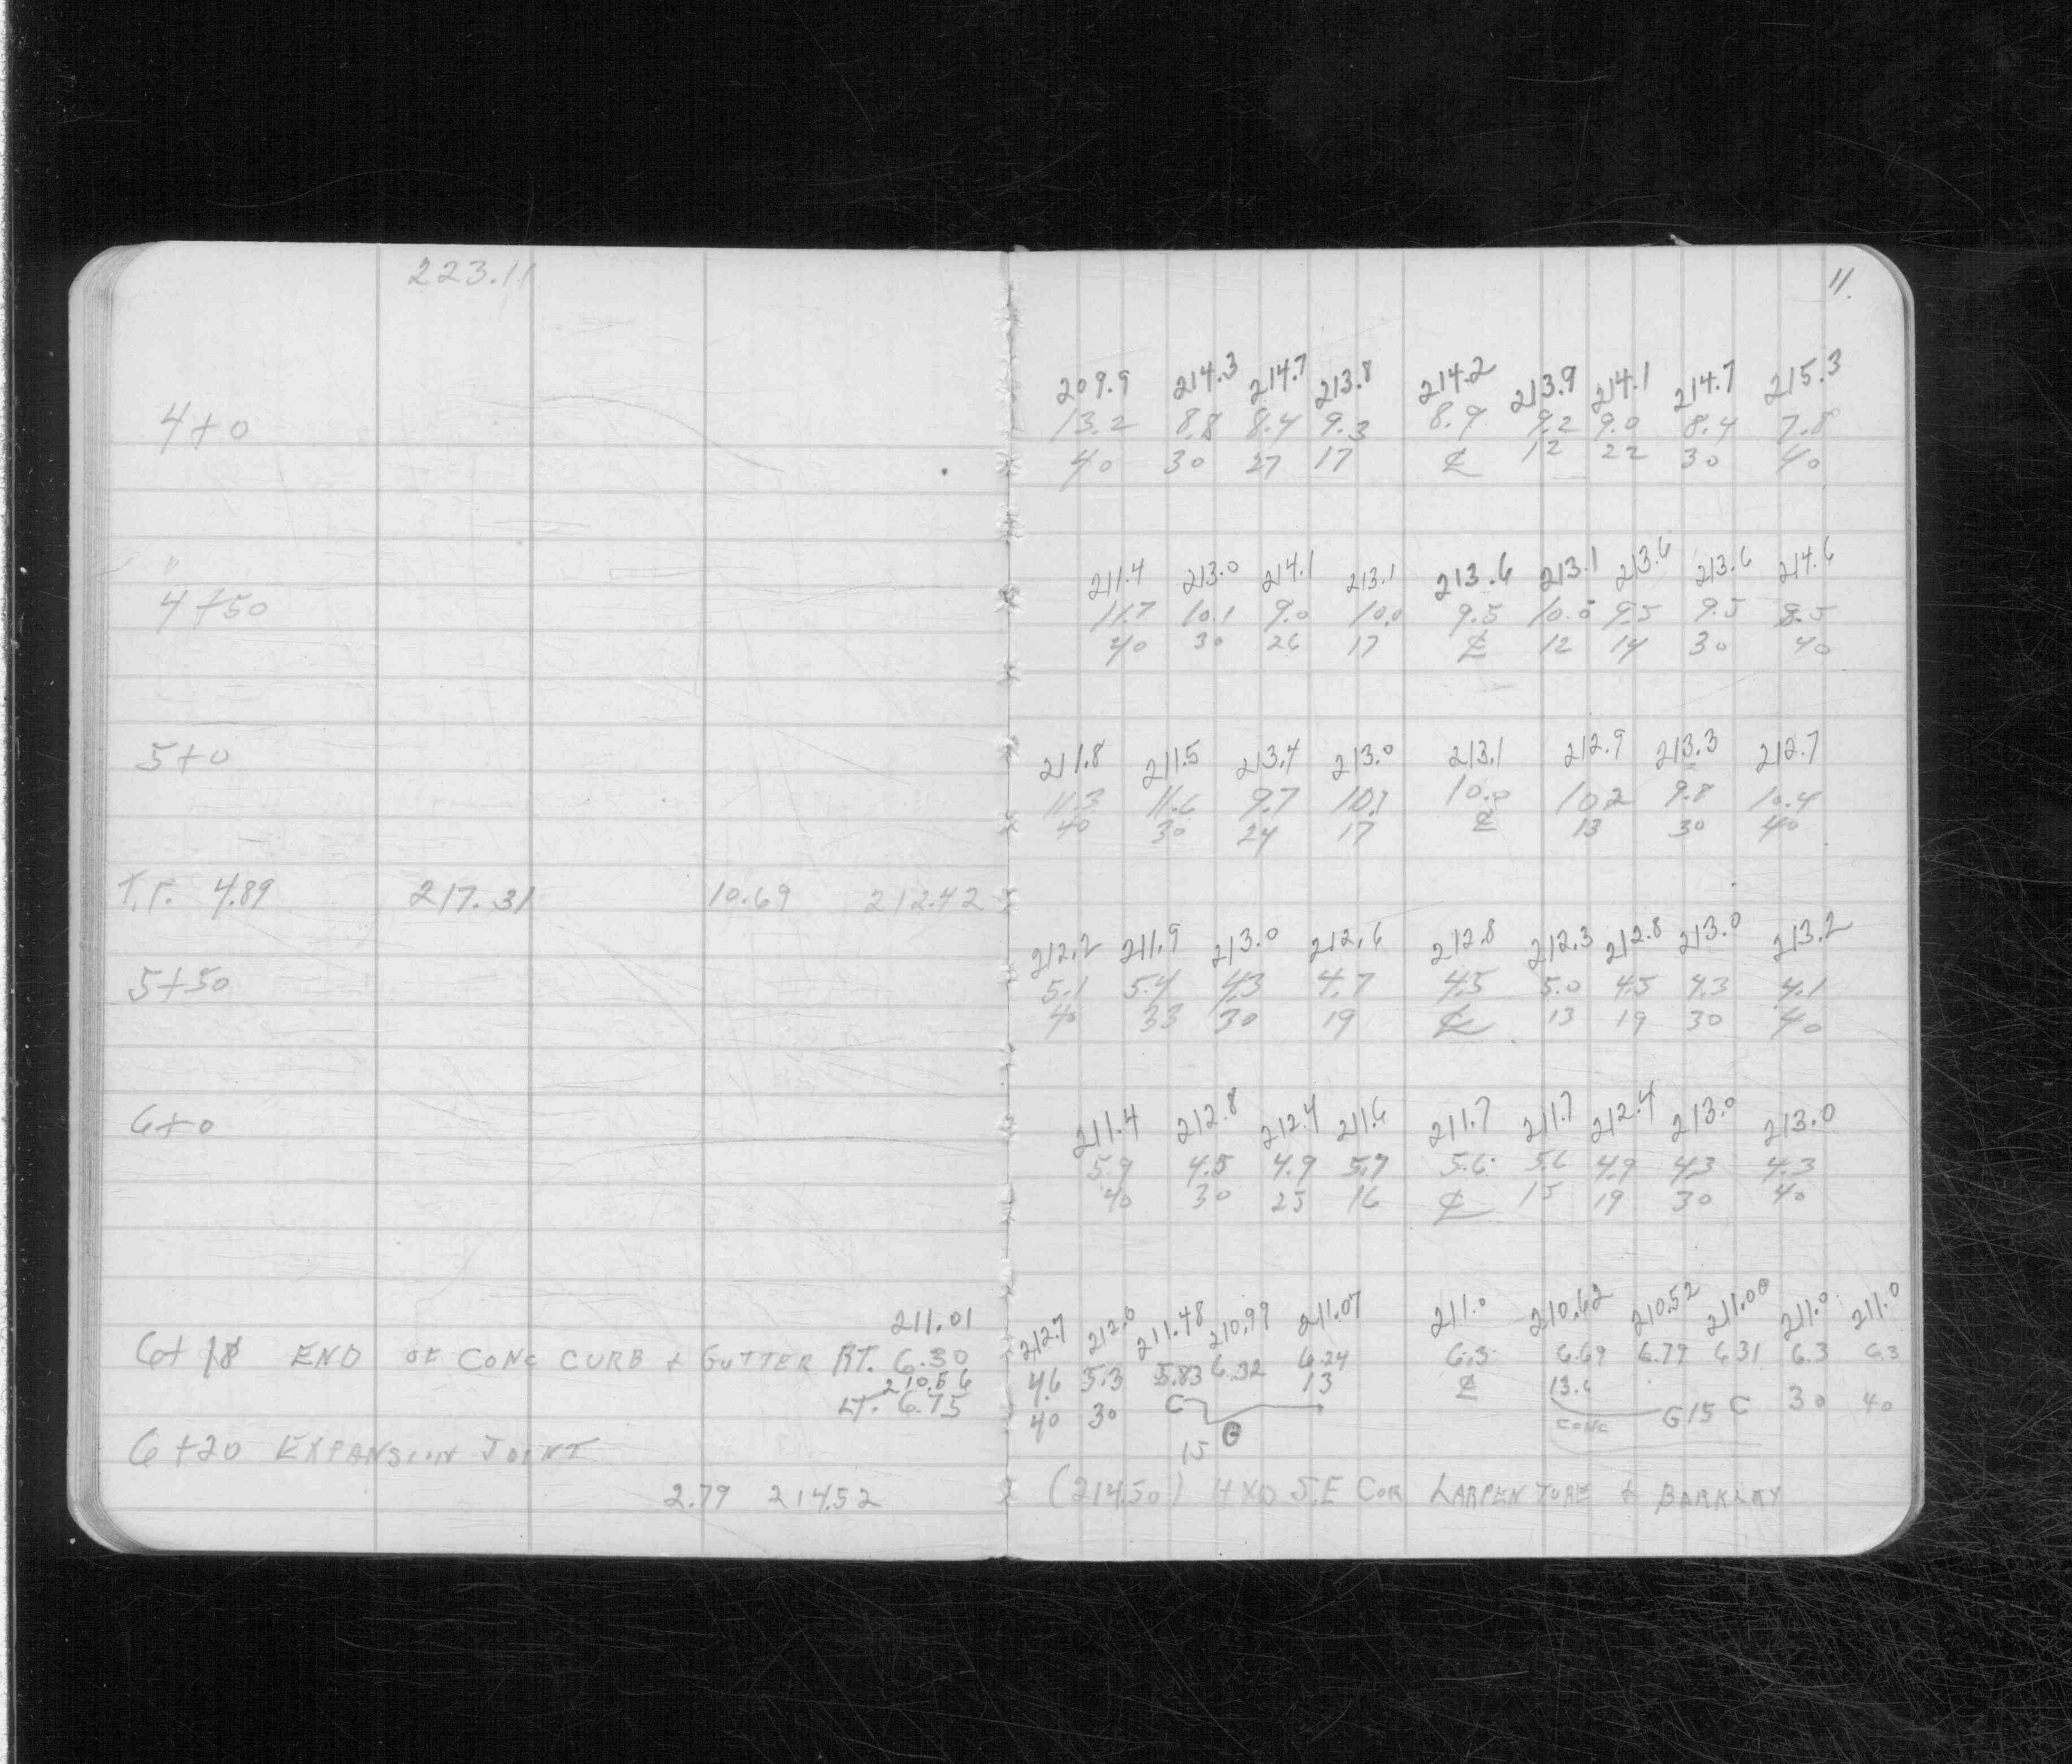 223.11
11.
209.9 214.3 214.7 213.8 214.2 213.9 214.1 214.7 215.3
4+0 13.2 8.8 8.4 9.3 8.9 9.2 9.0 8.4 7.8
40 30 27 17 ℄ 12 22 30 40
211.4 213.0 214.1 213.1 213.6 213.1 213.6 213.6 214.6
4+50 11.7 10.1 9.0 10.0 9.5 10.0 9.5 9.5 8.5
40 30 26 17 ℄ 12 14 30 40
211.8 211.5 213.4 213.0 213.1 212.9 213.3 212.7
5+0 11.3 11.6 9.7 10.1 10.0 10.2 9.8 10.4
40 30 24 17 ℄ 13 30 40
T.P. 4.89 217.31 10.69 212.42
212.2 211.9 213.0 212.6 212.8 212.3 212.8 213.0 213.2
5+50 5.1 5.4 4.3 4.7 4.5 5.0 4.5 4.3 4.1
40 33 30 19 ℄ 13 19 30 40
211.4 212.8 212.4 211.6 211.7 211.7 212.4 213.0 213.0
6+0 5.9 4.5 4.9 5.7 5.6 5.6 4.9 4.3 4.3
40 30 25 16 ℄ 15 19 30 40
211.01 212.7 212.0 211.48 210.99 211.07 211.0 210.62 210.52 211.00 211.0 211.0
6+18 END OF CONC CURB + GUTTER RT. 6.30 4.6 5.3 5.83 6.32 6.24 6.3 6.69 6.79 6.31 6.3 6.3
210.56 13 ℄ 13.6
LT. 6.75 40 30 C G 15 C 30 40
CONC
6+20 EXPANSION JOINT G
15
2.79 214.52 (214.50) HYD S.E COR LARPENTURE + BARKLEY